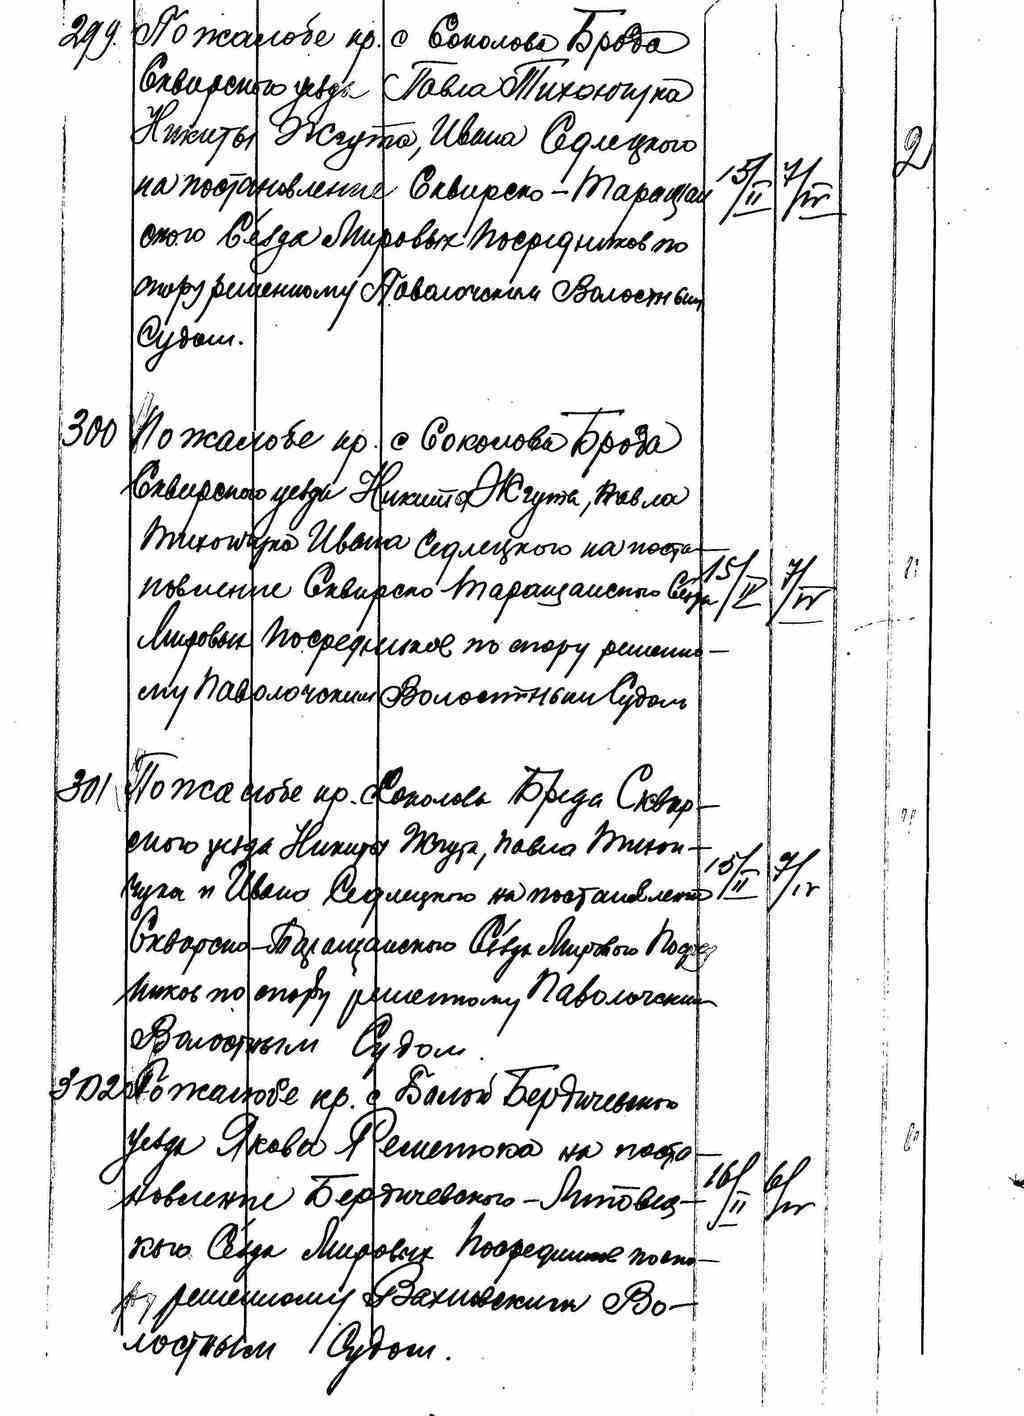 299. По жалобе кр. с Соколова Брода
Сквирского уезда Павла Тихончука
Никиты Жгута, Ивана Седлецкого
на постановление Сквирско-Таращан 15/II 7/IV 2
ского Съезда Мировых Посредников по
спору решенному Паволочским Волостным
Судом.
300 По жалобе кр. с Соколова Брода
Сквирского уезда Никиты Жгута, Павла
Тихончука Ивана Седлецкого на поста-
новление Сквирско Таращанского Съезда 15/II 7/IV
Мировых Посредников по спору решенно-
му Паволочским Волостным Судом
301 По жалобе кр. с Соколова Брода Сквир-
ского уезда Никиты Жгута, Павла Тихон-
чука и Ивана Седлецкого на постановление 15/II 7/IV
Сквирско-Таращанского Съезда Мирового Посред
ников по спору решенному Паволочским
Волостным Судом.
302 По жалобе кр. с Белой Бердичевского
уезда Якова на поста-
новление Бердичевского-Липовец- 16/II 6/IV
кого Съезда Мировых Посредников по спо-
ру решенному Вахновским Во-
лостным Судом.